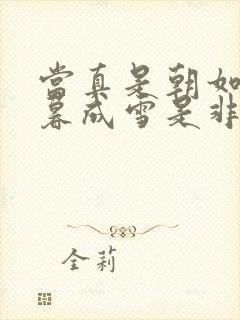 當真是朝如
暮成雪是非
全莉